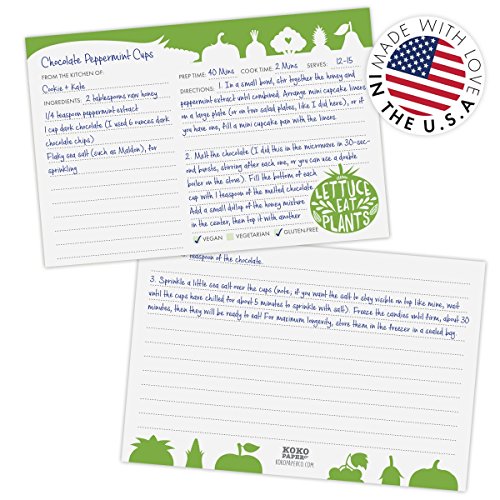 Chocolate Peppermint Cups
FROM THE KITCHEN OF:
Cookie + Kate
INGREDIENTS: 2 tablespoons raw honey
1/4 teaspoon peppermint extract
1 cup dark chocolate (I used 6 ounces dark
chocolate chips)
Flaky sea salt (such as Maldon), for
sprinkling
PREP TIME: 40 Mins COOK TIME: 2 Mins SERVES: 12-15
DIRECTIONS: 1. In a small bowl, stir together the honey and
peppermint extract until combined. Arrange mini cupcake liners
on a large plate (or on two salad plates, like I did here), or if
you have one, fill a mini cupcake pan with the liners.
2. Melt the chocolate (I did this in the microwave in 30-sec-
ond bursts, stirring after each one, or you can use a double
boiler on the stove). Fill the bottom of each
cup with 1 teaspoon of the melted chocolate
Add a small dollop of the honey mixture
in the center, then top it with another
LETTUCE
EAT
PLANTS
VEGAN VEGETARIAN GLUTEN-FREE
MADE WITH LOVE
IN THE U.S.A
teaspoon of the chocolate.
3. Sprinkle a little sea salt over the cups (note, if you want the salt to stay visible on top like mine, wait
until the cups have chilled for about 5 minutes to sprinkle with salt). Freeze the candies until firm, about 30
minutes, then they will be ready to eat! For maximum longevity, store them in the freezer in a sealed bag.
KOKO
PAPER CO
KOKOPAPERCO.COM